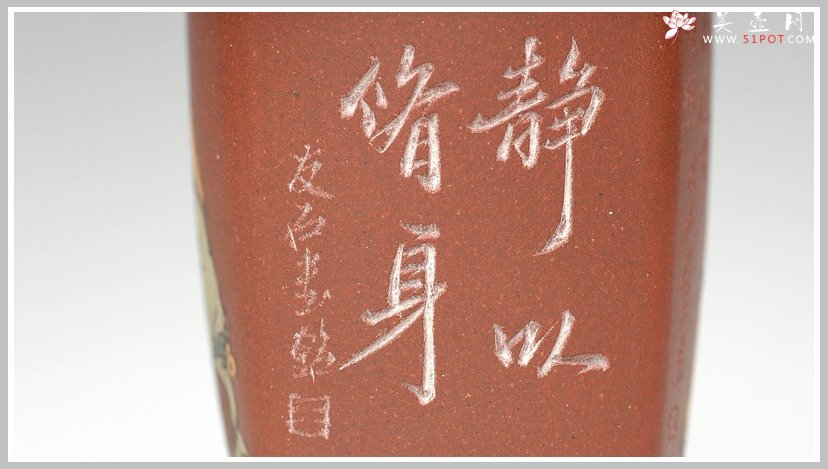 静以
脩身
友石書銘
美壶网
WWW.51POT.COM